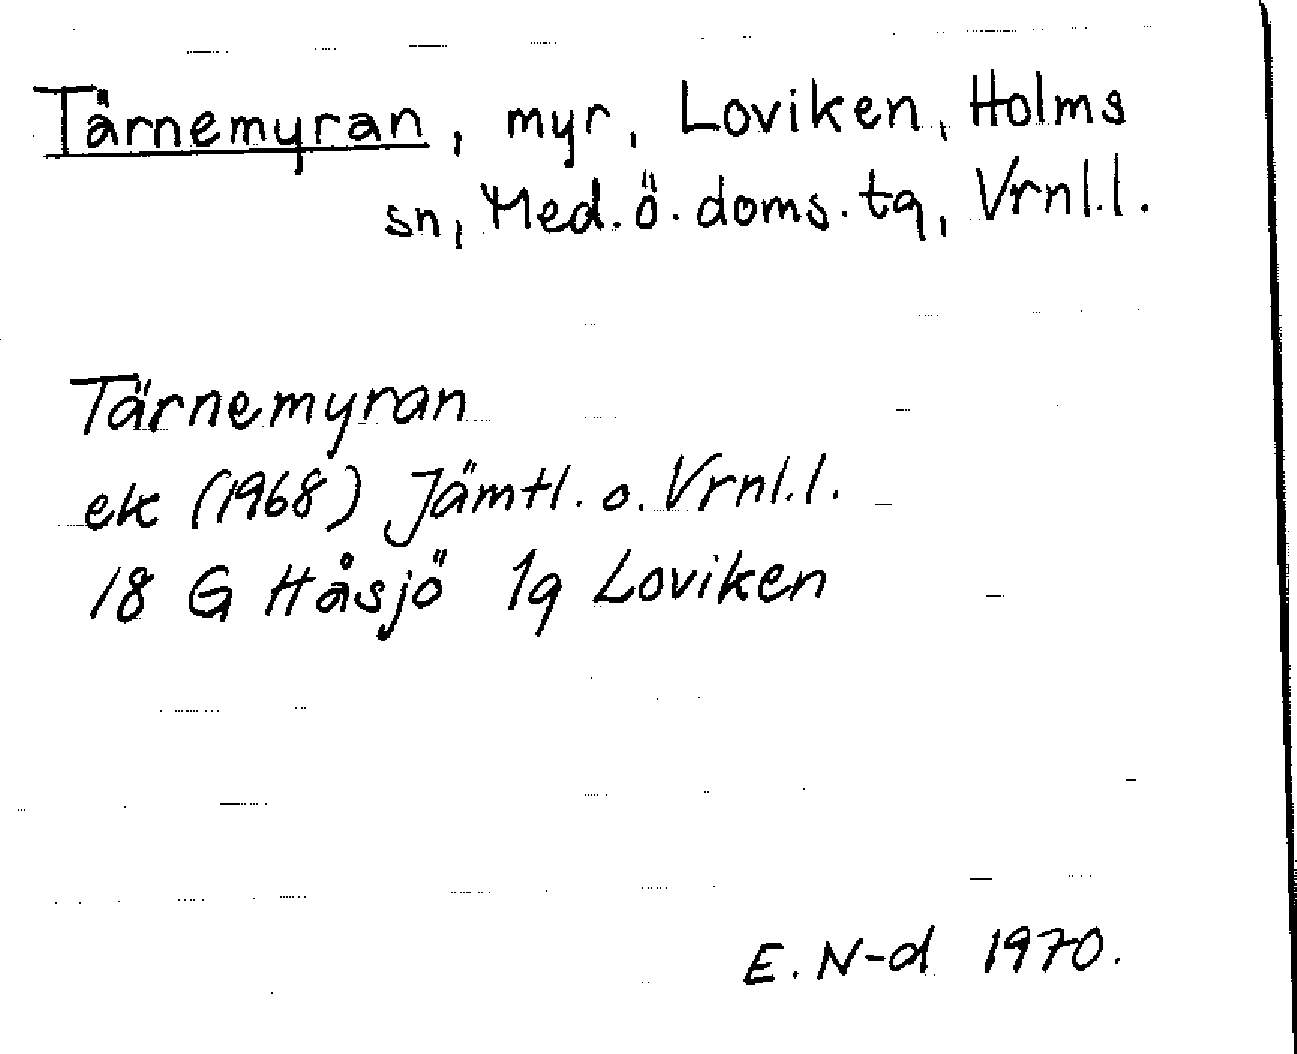 Tärnemyran, myr, Loviken, Holms
sn, Med. ö. doms. tg, Vrnl.l.
Tärnemyran
ek (1968) Jämtl. o. Vrnl.l.
18 G Håsjö 1g Loviken
E. N-d 1970.